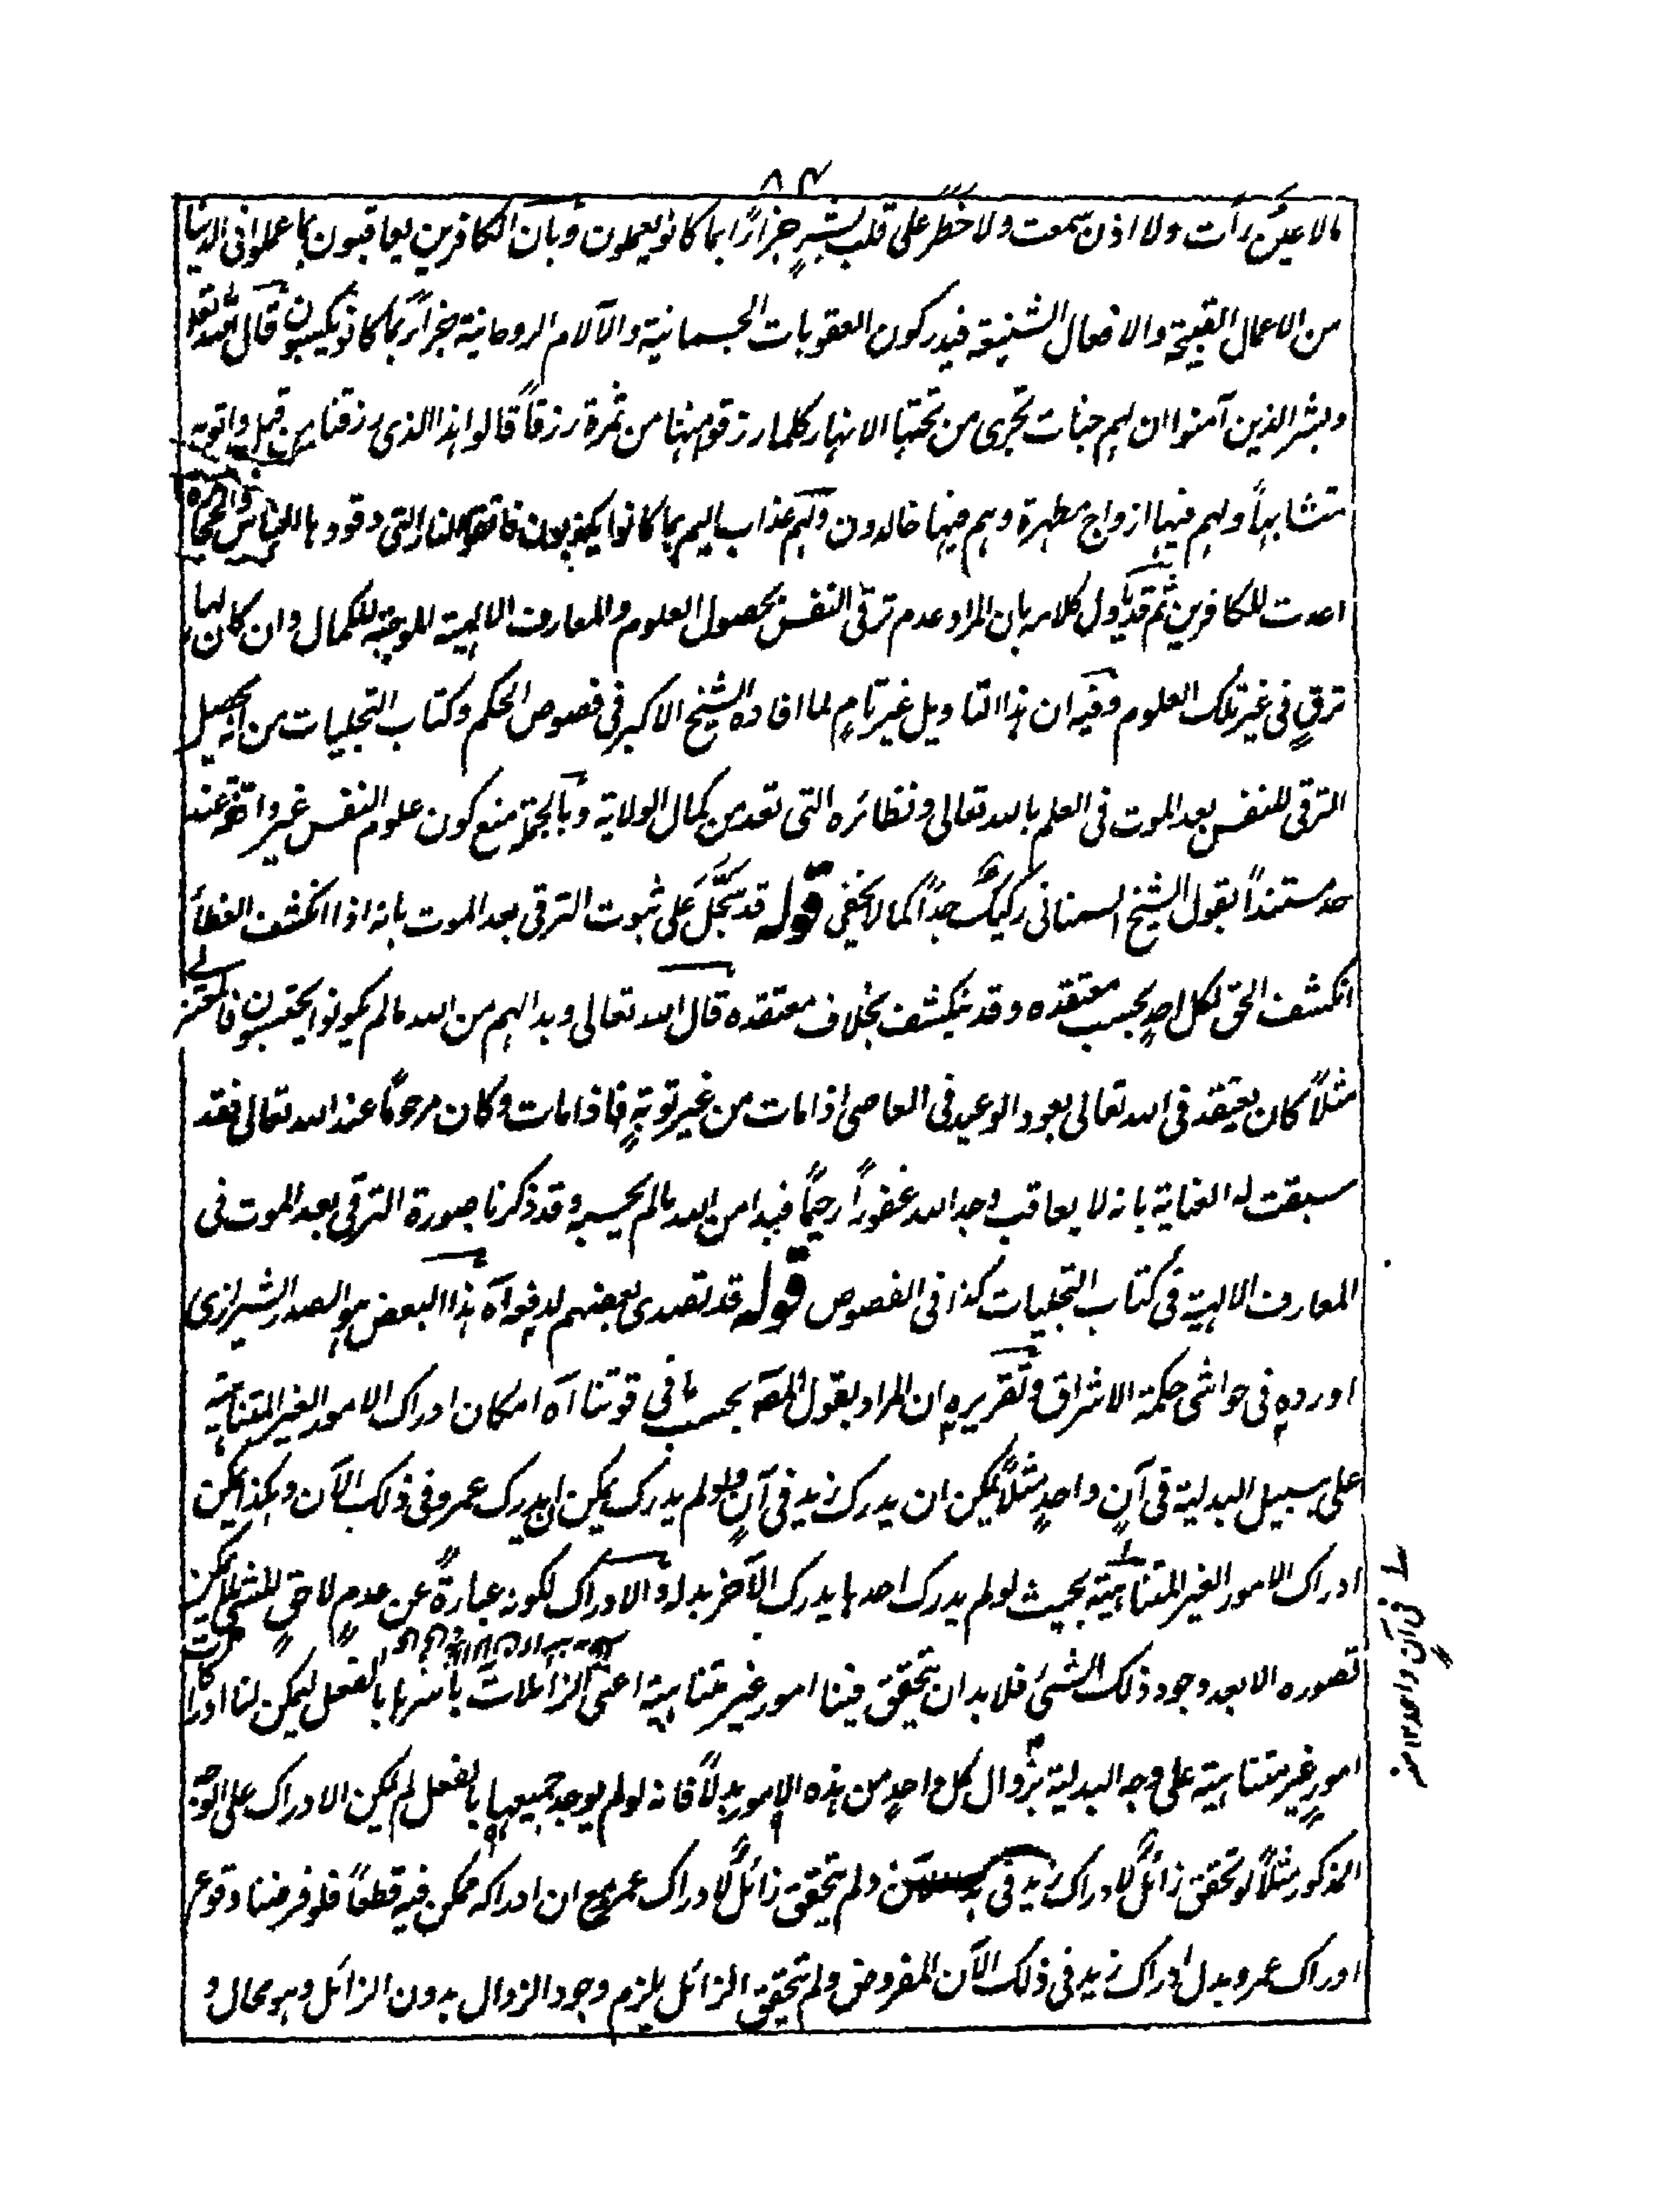 ٨٤
مالا عين رأت ولا اذن سمعت ولا خطر على قلب بشر جزاءً بما كانوا يعملون وبان الكافرين يعاقبون بما عملوا فى الدنيا
من الاعمال القبيحة والافعال الشنيعة فيدركون العقوبات الجسمانية والآلام الروحانية جزاءً بما كانوا يكسبون قال الله تعالى
وبشر الذين آمنوا ان لهم جنات تجرى من تحتها الانهار كلما رزقوا منها من ثمرة رزقاً قالوا هذا الذى رزقنا من قبل واتوا به
متشابهاً ولهم فيها ازواج مطهرة وهم فيها خالدون ولهم عذاب اليم بما كانوا يكذبون فاتقوا النار التى وقودها الناس والحجارة
اعدت للكافرين ثم قد ياول كلامه بان المراد عدم ترقى النفس بحصول العلوم والمعارف الالهية الموجبة للكمال وان كان لها
ترقٍ فى غير تلك العلوم وفيه ان هذا التاويل غير تامٍ لما افاده الشيخ الاكبر فى فصوص الحكم وكتاب التجليات من انه يحصل
الترقى للنفس بعد الموت فى العلم بالله تعالى ونظائره التى تعد من كمال الولاية وبالجملة منع كون علوم النفس غير واقفة عند
حد مستنداً بقول الشيخ السمنانى ركيك جداً كما لا يخفى قوله قد سجّل على ثبوت الترقى بعد الموت بانه اذا انكشف الغطاء
انكشف الحق لكل احدٍ بحسب معتقده وقد ينكشف بخلاف معتقده قال الله تعالى وبدا لهم من الله مالم يكونوا يحتسبون فالمعتزلى
مثلاً كان يعتقد فى الله تعالى بعود الوعيد فى العاصى اذا مات من غير توبةٍ فاذا مات وكان مرحوماً عند الله تعالى فقد
سبقت له العناية بانه لا يعاقب وجد الله غفوراً رحيماً فبدا من الله مالم يحسبه وقد ذكرنا صورة الترقى بعد الموت فى
المعارف الالهية فى كتاب التجليات كذا فى الفصوص قوله قد تصدى بعضهم لدفعه آه هذا البعض هو الصدر الشيرازى
اورده فى حواشى حكمة الاشراق وتقريره ان المراد بقول المصـ بحسب ما فى قوتنا آه امكان ادراك الامور الغير المتناهية
على سبيل البدلية فى آنٍ واحدٍ مثلاً يمكن ان يدرك زيد فى آنٍ ولو لم يدرك يمكن ان يدرك عمرو فى ذلك الآن وهكذا يمكن
ادراك الامور الغير المتناهية بحيث لو لم يدرك احدها يدرك الآخر بدله والادراك لكونه عبارةً عن عدمٍ لاحقٍ للشئ لا يمكن
تصوره الا بعد وجود ذلك الشئ فلا بد ان يتحقق فينا امور غير متناهية اعنى الزائلات باسرها بالفعل ليمكن لنا ادراكات
امورٍ غير متناهية على وجه البدلية بزوال كل واحدٍ من هذه الامور بدلاً فانه لو لم يوجد جميعها بالفعل لم يكن الادراك على الوجه
المذكور مثلاً لو تحقق زائلٌ لادراك زيد فى ولم يتحقق زائلٌ لادراك عمرو مع ان ادراكه ممكن فيه قطعاً فلو فرضنا وقوع
ادراك عمرو بدل ادراك زيد فى ذلك الآن المفروض ولم يتحقق الزائل يلزم وجود الزوال بدون الزائل وهو محال و
فى آن واحد ١٢ منه